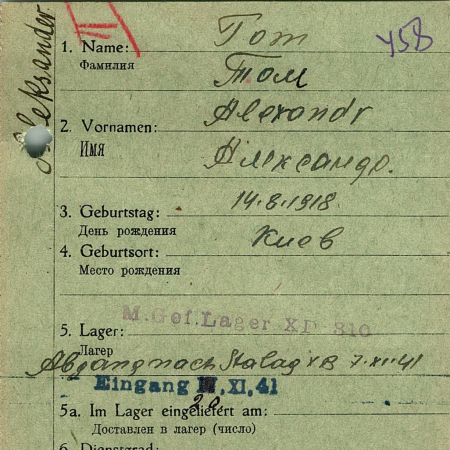 Aleksander
1. Name: Гот
Фамилия
Гот
458
Alexandr
2. Vornamen:
Имя
Александр.
3. Geburtstag: 14.8.1918
День рождения
4. Geburtsort: Киев
Место рождения
M.Gef.Lager XD 310
5. Lager:
Лагерь
Abgang nach Stalag XB 7.XII.41
Eingang XI.41
20
5a. Im Lager eingeliefert am:
Доставлен в лагер (число)
6. Dienstgrad: